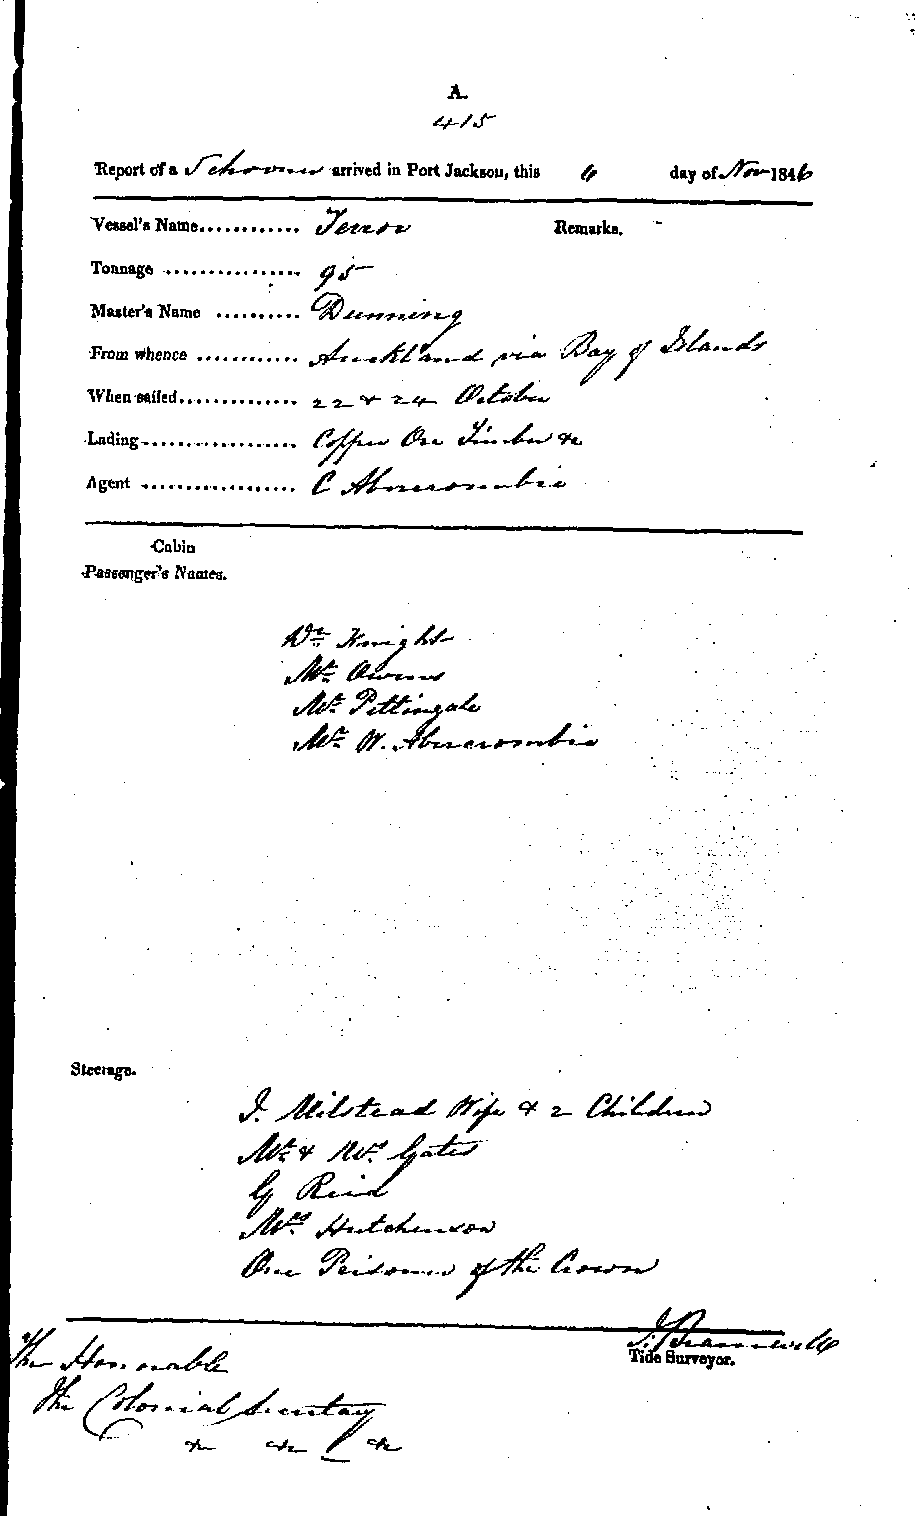 A.
415
Report of a Schooner arrived in Port Jackson, this 6 day of Nov 1846
Vessel's Name............ Terror Remarks.
Tonnage ................ 95
Master's Name .......... Dunning
From whence ............ Auckland via Bay of Islands
When sailed.............. 22 & 24 October
Lading.................. Copper Ore Timber &c
Agent .................. C Abercrombie
Cabin
Passenger's Names.
Dr Knight
Mr Owens
Mr Pettingale
Mr W. Abercrombie
Steerage.
J. Milstead Wife & 2 Children
Mr & Mrs Gates
G Reid
Mrs Hutchenson
One Prisoner of the Crown
Tide Surveyor.
The Honorable
The Colonial Secretary
&c &c &c